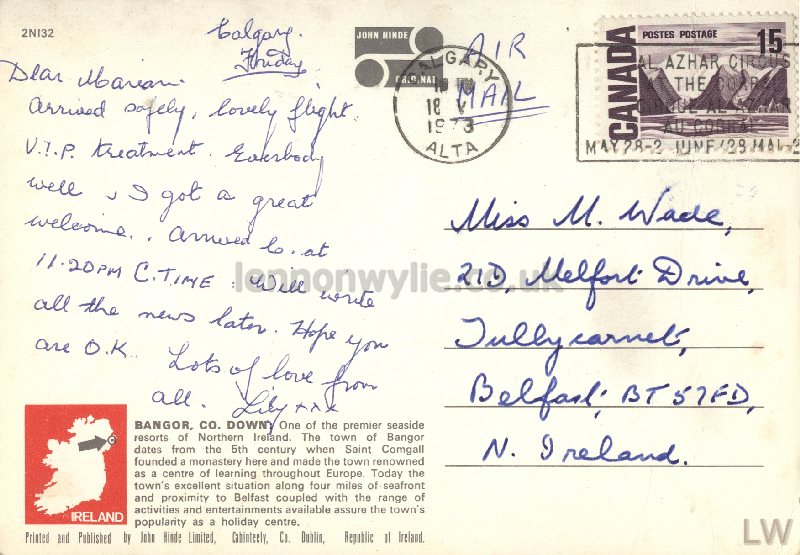 2NI32
Calgary.
Friday.
Dear Maream.
Arrived safely, lovely flight.
V.I.P. treatment. Everbody
well & I got a great
welcome. Arrived C. at
11.20PM C.TIME. Will write
all the news later. Hope you
are O.K. Lots of love from
all. Lily xxx
JOHN HINDE
ORIGINAL
AIR
MAIL
CALGARY
18 V
1973
ALTA
POSTES POSTAGE
15
CANADA
AL AZHAR CIRCUS
AT THE CORRAL
CIRQUE AL AZHAR
AU CORRAL
MAY 28-2 JUNE/28 MAI-2
Miss M. Wade,
21D, Melfort Drive,
Tullycarnet,
Belfast, BT57FD,
N. Ireland.
lennonwylie.co.uk
IRELAND
BANGOR, CO. DOWN, One of the premier seaside
resorts of Northern Ireland. The town of Bangor
dates from the 5th century when Saint Comgall
founded a monastery here and made the town renowned
as a centre of learning throughout Europe. Today the
town's excellent situation along four miles of seafront
and proximity to Belfast coupled with the range of
activities and entertainments available assure the town's
popularity as a holiday centre.
Printed and Published by John Hinde Limited, Cabinteely, Co. Dublin, Republic of Ireland.
LW